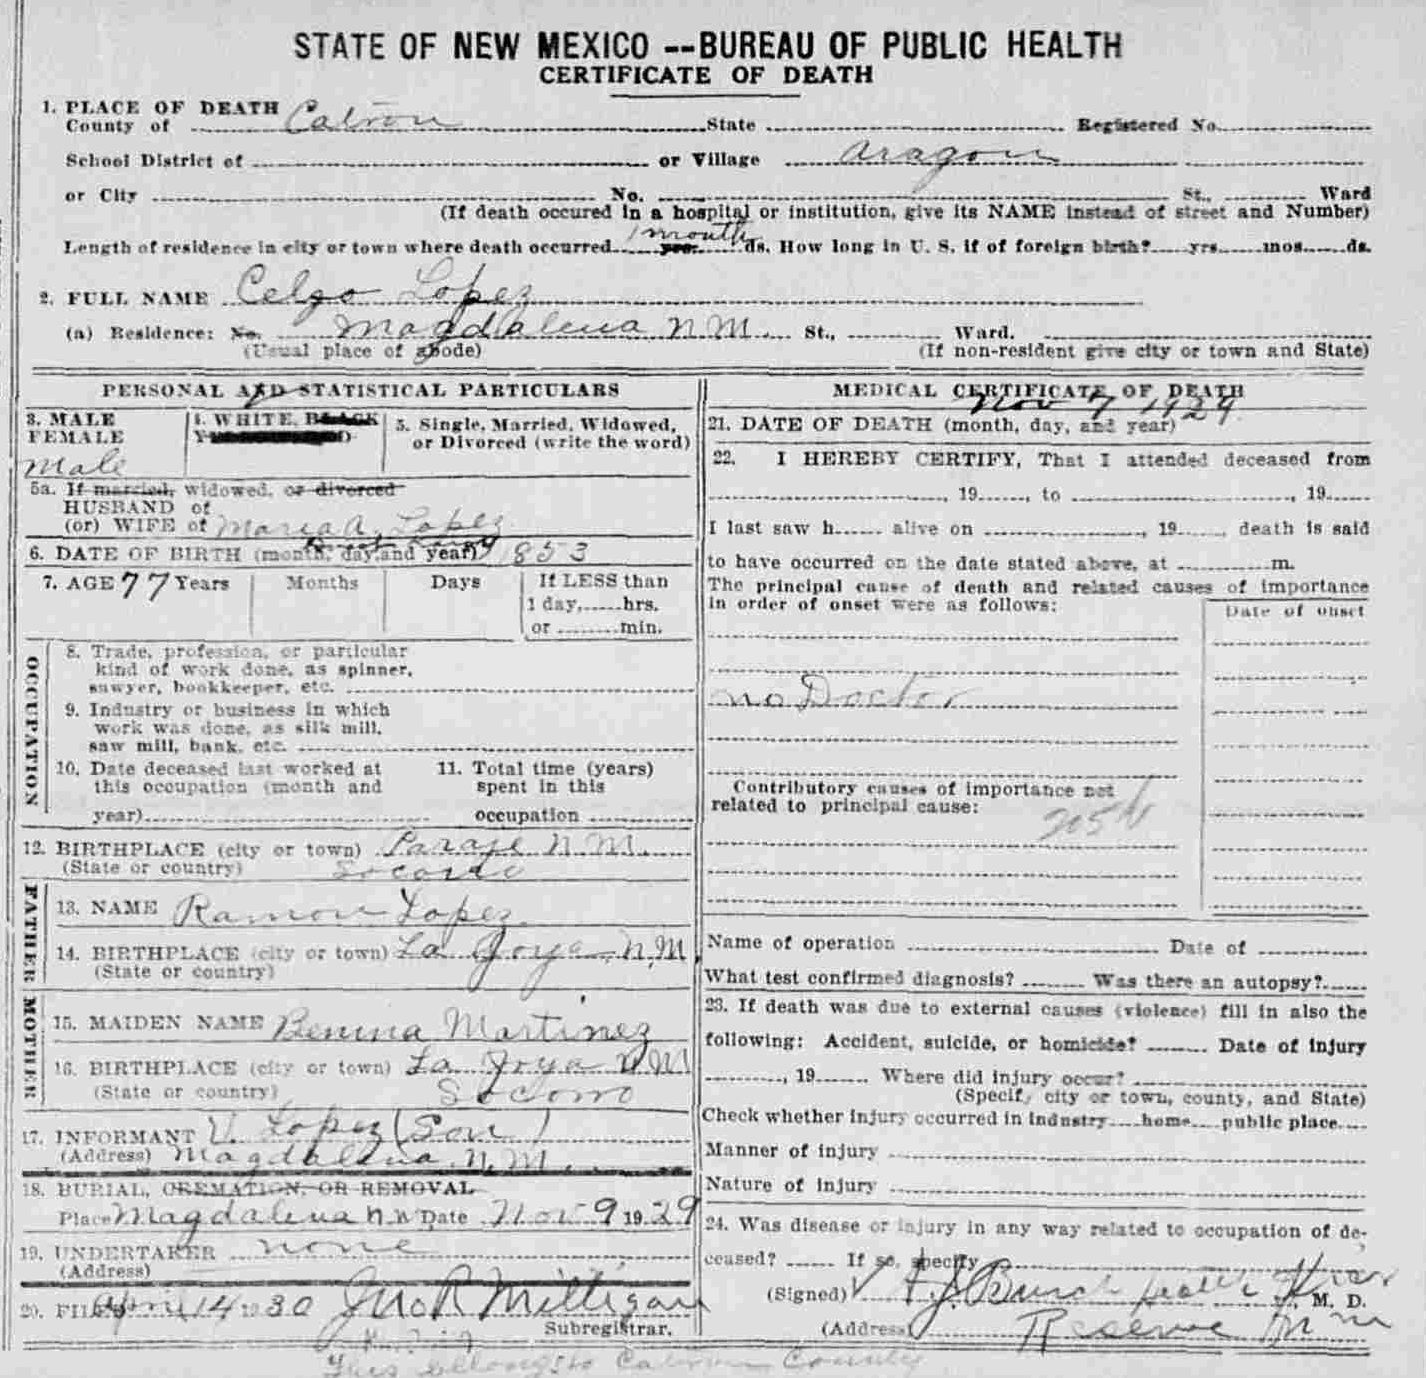 STATE OF NEW MEXICO -- BUREAU OF PUBLIC HEALTH
CERTIFICATE OF DEATH
1. PLACE OF DEATH
County of Catron State Registered No.
School District of or Village Aragon
or City No. St., Ward
(If death occured in a hospital or institution, give its NAME instead of street and Number)
Length of residence in city or town where death occurred 1 month yrs. ds. How long in U. S. if of foreign birth? yrs. mos. ds.
2. FULL NAME Celgo Lopez
(a) Residence: No. Magdalena N M. St., Ward.
(Usual place of abode) (If non-resident give city or town and State)
PERSONAL AND STATISTICAL PARTICULARS
3. MALE
FEMALE
Male
4. WHITE, BLACK
5. Single, Married, Widowed,
or Divorced (write the word)
5a. If married, widowed, or divorced
HUSBAND of
(or) WIFE of Maria A. Lopez
6. DATE OF BIRTH (month, day, and year) 1853
7. AGE 77 Years Months Days If LESS than
1 day, hrs.
or min.
OCCUPATION
8. Trade, profession, or particular
kind of work done, as spinner,
sawyer, bookkeeper, etc.
9. Industry or business in which
work was done, as silk mill,
saw mill, bank, etc.
10. Date deceased last worked at
this occupation (month and
year)
11. Total time (years)
spent in this
occupation
12. BIRTHPLACE (city or town) Paraje N.M.
(State or country) Socorro
FATHER
13. NAME Ramon Lopez
14. BIRTHPLACE (city or town) La Joya, N.M.
(State or country)
MOTHER
15. MAIDEN NAME Benina Martinez
16. BIRTHPLACE (city or town) La Joya N M
(State or country) Socorro
17. INFORMANT V. Lopez (Son)
(Address) Magdalena N.M.
18. BURIAL, CREMATION, OR REMOVAL
Place Magdalena N M Date Nov 9 1929
19. UNDERTAKER none
(Address)
20. FILED April 14 1930 Jno R Milligan
Subregistrar.
MEDICAL CERTIFICATE OF DEATH
Nov 7 1929
21. DATE OF DEATH (month, day, and year)
22. I HEREBY CERTIFY, That I attended deceased from
, 19 , to , 19
I last saw h alive on , 19 , death is said
to have occurred on the date stated above, at m.
The principal cause of death and related causes of importance
in order of onset were as follows: Date of onset
no Doctor
Contributory causes of importance not
related to principal cause:
205b
Name of operation Date of
What test confirmed diagnosis? Was there an autopsy?
23. If death was due to external causes (violence) fill in also the
following: Accident, suicide, or homicide? Date of injury
, 19 Where did injury occur?
(Specify city or town, county, and State)
Check whether injury occurred in industry home public place
Manner of injury
Nature of injury
24. Was disease or injury in any way related to occupation of de-
ceased? If so, specify
(Signed) Burch M. D.
(Address) Reserve N M
This belongs to Catron County